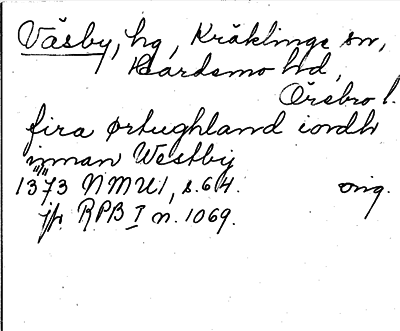 Väsby, hg, Kräklinge sn,
Hardemo hd,
Örebro l.
fira ørtughland iordh
innan Westby
1373 NMU1, s. 64. orig.
jfr RPB I n. 1069.